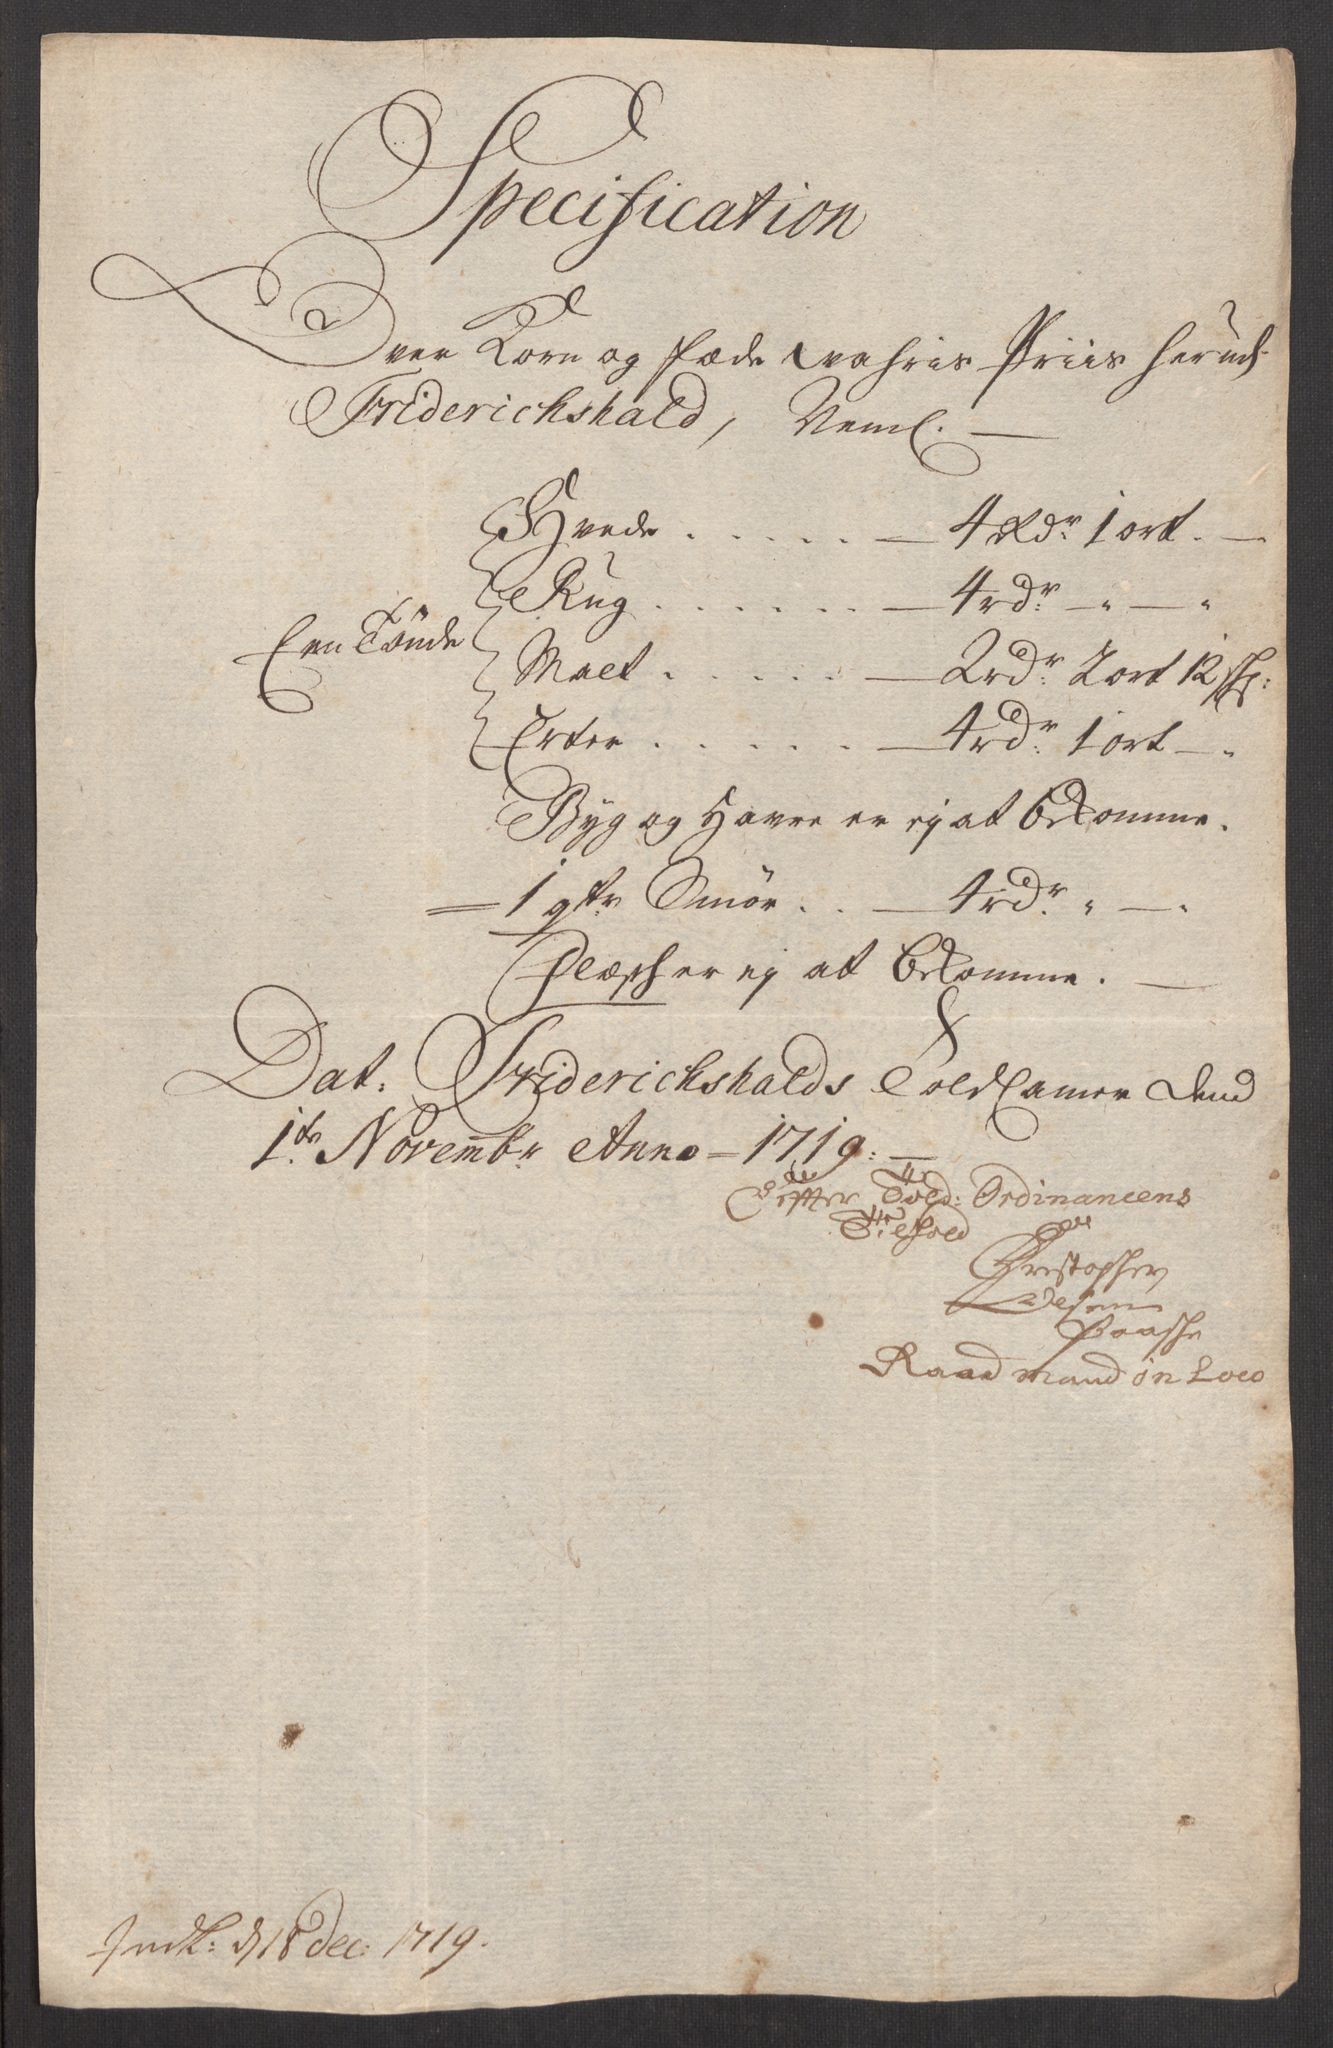 Specification
Over Korn og fæde wahris Priis her ud
Friderichshald, Neml. —
Een Tönde
Hvede . . . . . — 4 Rdr. 1 ort. —
Rug . . . . . . — 4 rdr. — " — "
Malt . . . . . — 2 rdr. 2 ort 12 sk:
Erter . . . . . — 4 rdr. 1 ort — "
Byg og Havre er ej at bekomme.
= 1 Smör . . — 4 rdr. " — "
er ej at bekomme. —
Dat. Friderichshalds Told Camer dend
1te Novembr Anno — 1719: —
Effter Told: Ordinancens
Tilhold
Christopher
Paaske
Raadmand in Loco
Indk: d 18 dec: 1719.